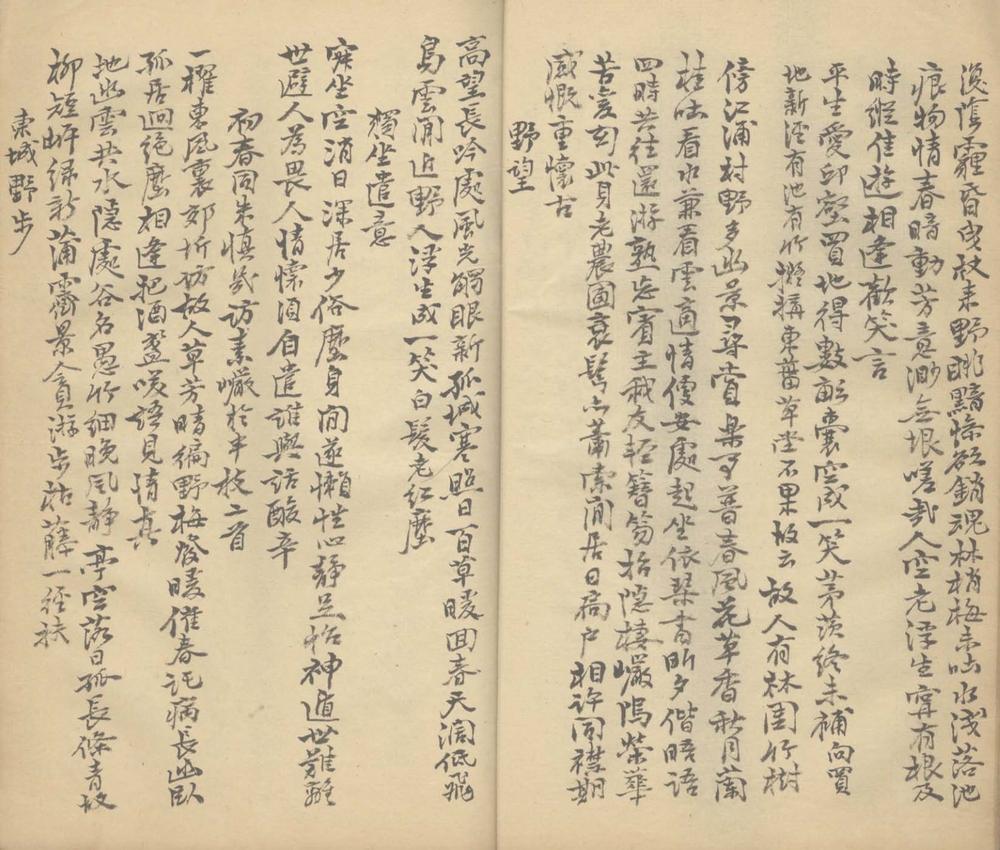 漫陰霾昏曳杖来野眺黯慘欲銷魂林梢梅未吐水浅落池
痕物情春暗動芳意渺無垠嗟哉人空老浮生寧有根及
時縱佳遊相逢歡笑言
平生愛邱壑買地得數畝囊空成一笑茅茨終未補向買
地新涇有池有竹擬搆東菑草堂不果故云故人有林園竹樹
傍江浦村野多幽景尋賞果可普春風花草香秋月蘭
桂吐看水兼看雲適情便安處起坐依琹書昕夕偕晤語
四時共往還游熟忘賓主我友輕簪笏招隱棲巖隖榮華
苦變幻此貝老農圃衰髩亦蕭索閒居日扃户相許同襟期
感慨重懷古
野望
高望長吟處風光觸眼新孤城寒照日百草暖回春天濶低飛
鳥雲閒近野人浮生成一笑白髮老紅塵
獨坐遣意
寂坐空消日深居少俗塵身閒遂懶性心静足怡神遁世難離
世避人為畏人情懷須自遣誰與話酸辛
初春同朱慎幾訪素巖於半枝二首
一櫂東風裏郊圻訪故人草芳晴徧野梅發暖催春託病長幽卧
孤居迥绝塵相逢把酒盞唉語見情真
地幽雲共水隱處谷名愚竹细晚風静亭空落日孤長條青放
柳短岍绿新蒲霽景貪游步枯藤一徑扶
東城野步